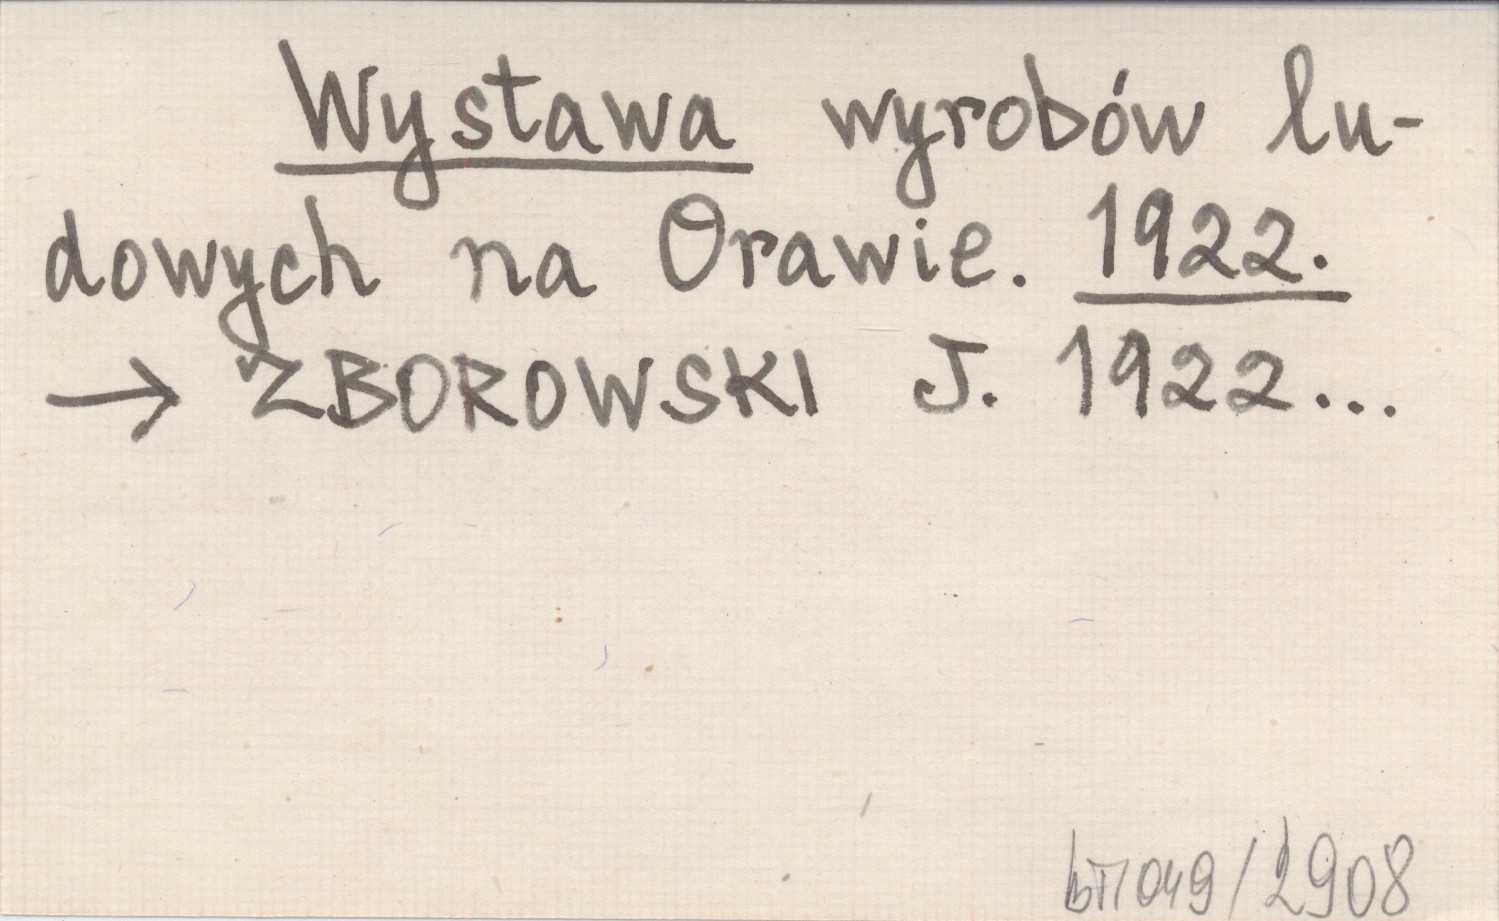 Wystawa wyrobów lu-
dowych na Orawie. 1922.
→ ZBOROWSKI J. 1922...
/2908